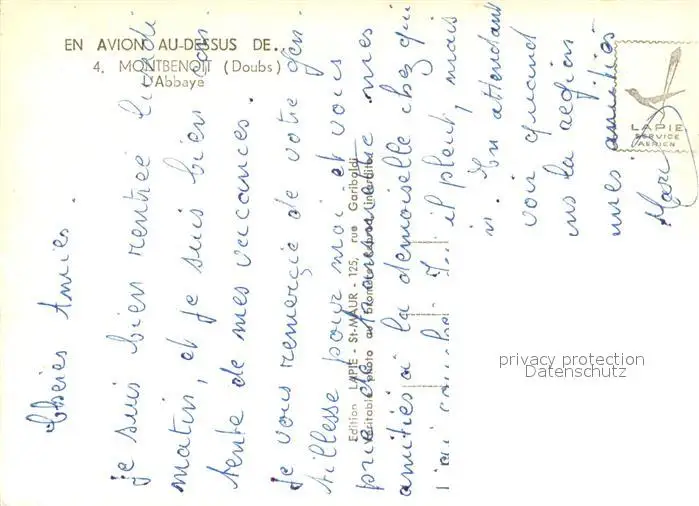 EN AVION AU-DESSUS DE...
4. MONTBENOIT (Doubs)
L'Abbaye
LAPIE
SERVICE
AERIEN
Edition LAPIE - St-MAUR - 125, rue Garibaldi
Véritable photo au bromure interdite
Chères Amies.
je suis bien rentrée lundi
matin, et je suis bien con
tente de mes vacances.
je vous remercie de votre gen
tillesse pour moi et vous
prie de transmettre mes
amitiés à la demoiselle chez qui
j'ai il pleut, mais
En attendant
voir quand
la région
mes amitiés
privacy protection
Datenschutz